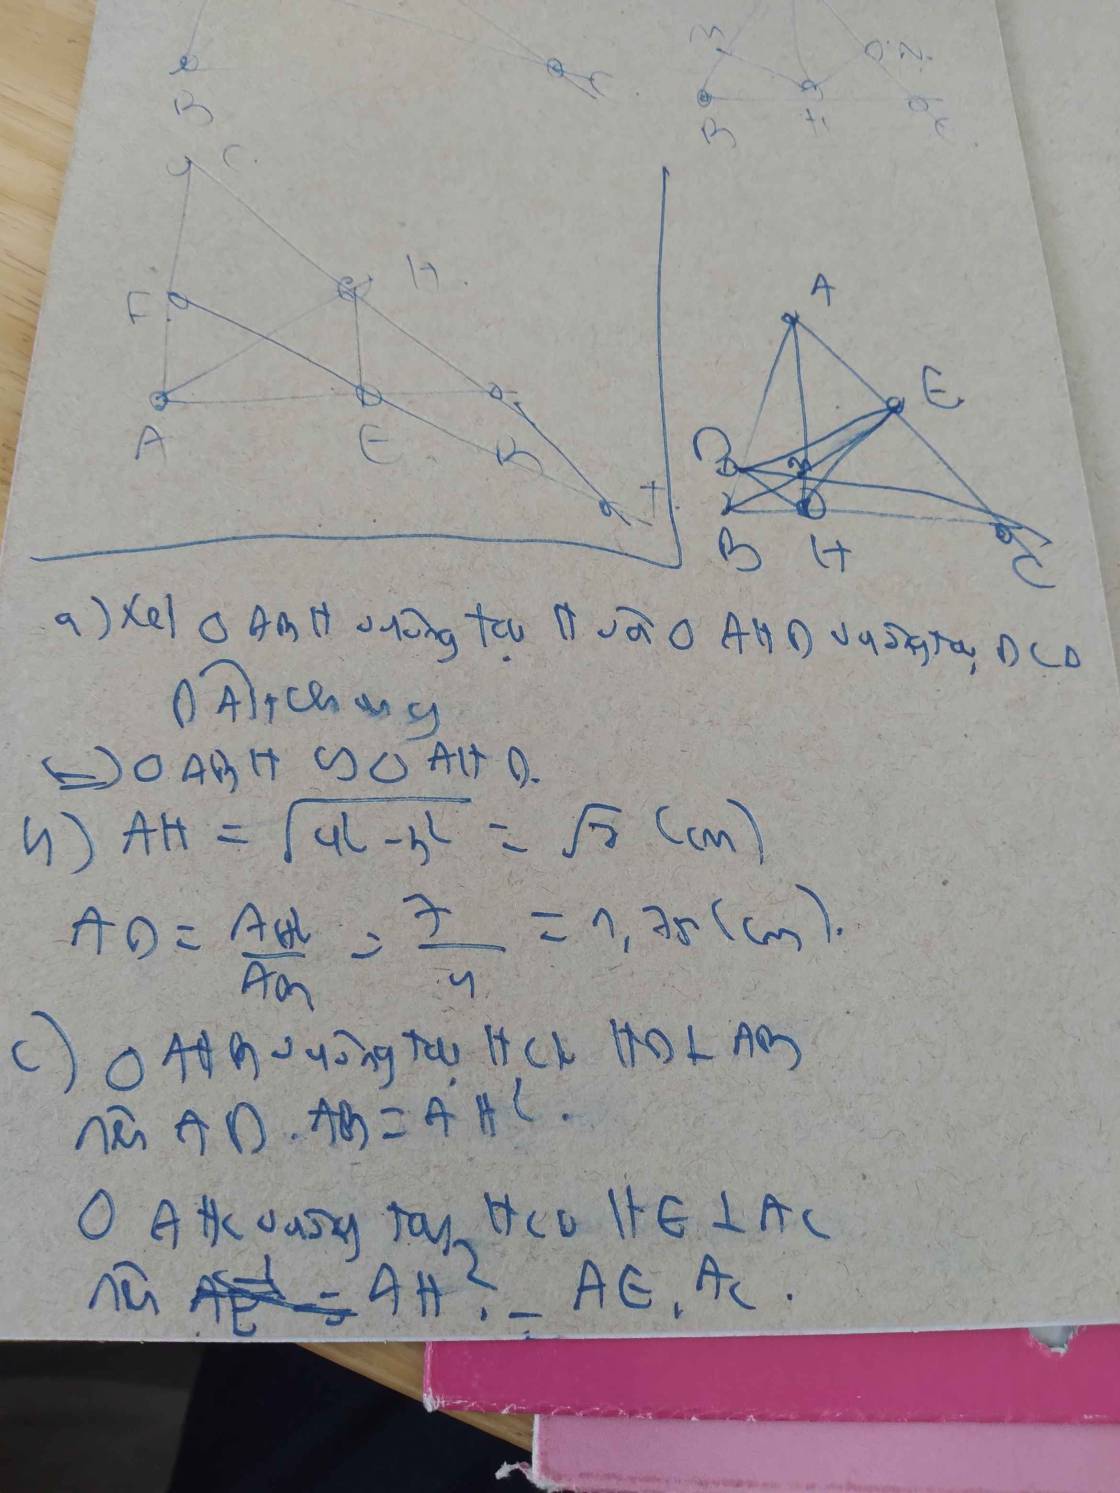 B
C
B
H
N
C
C
F
H
A
E
B
I
A
E
D
B
H
C
a) Xét △ ABH vuông tại H và △ AHD vuông tại D có
DAH chung
=> △ ABH ∽ △ AHD.
b) AH = √4² - 3² = √7 (cm)
AD = AH²/AB = 7/4 = 1,75 (cm).
c) △ AHB vuông tại H có HD ⊥ AB
nên AD . AB = AH².
△ AHC vuông tại H có HE ⊥ AC
nên AH² = AE . AC .